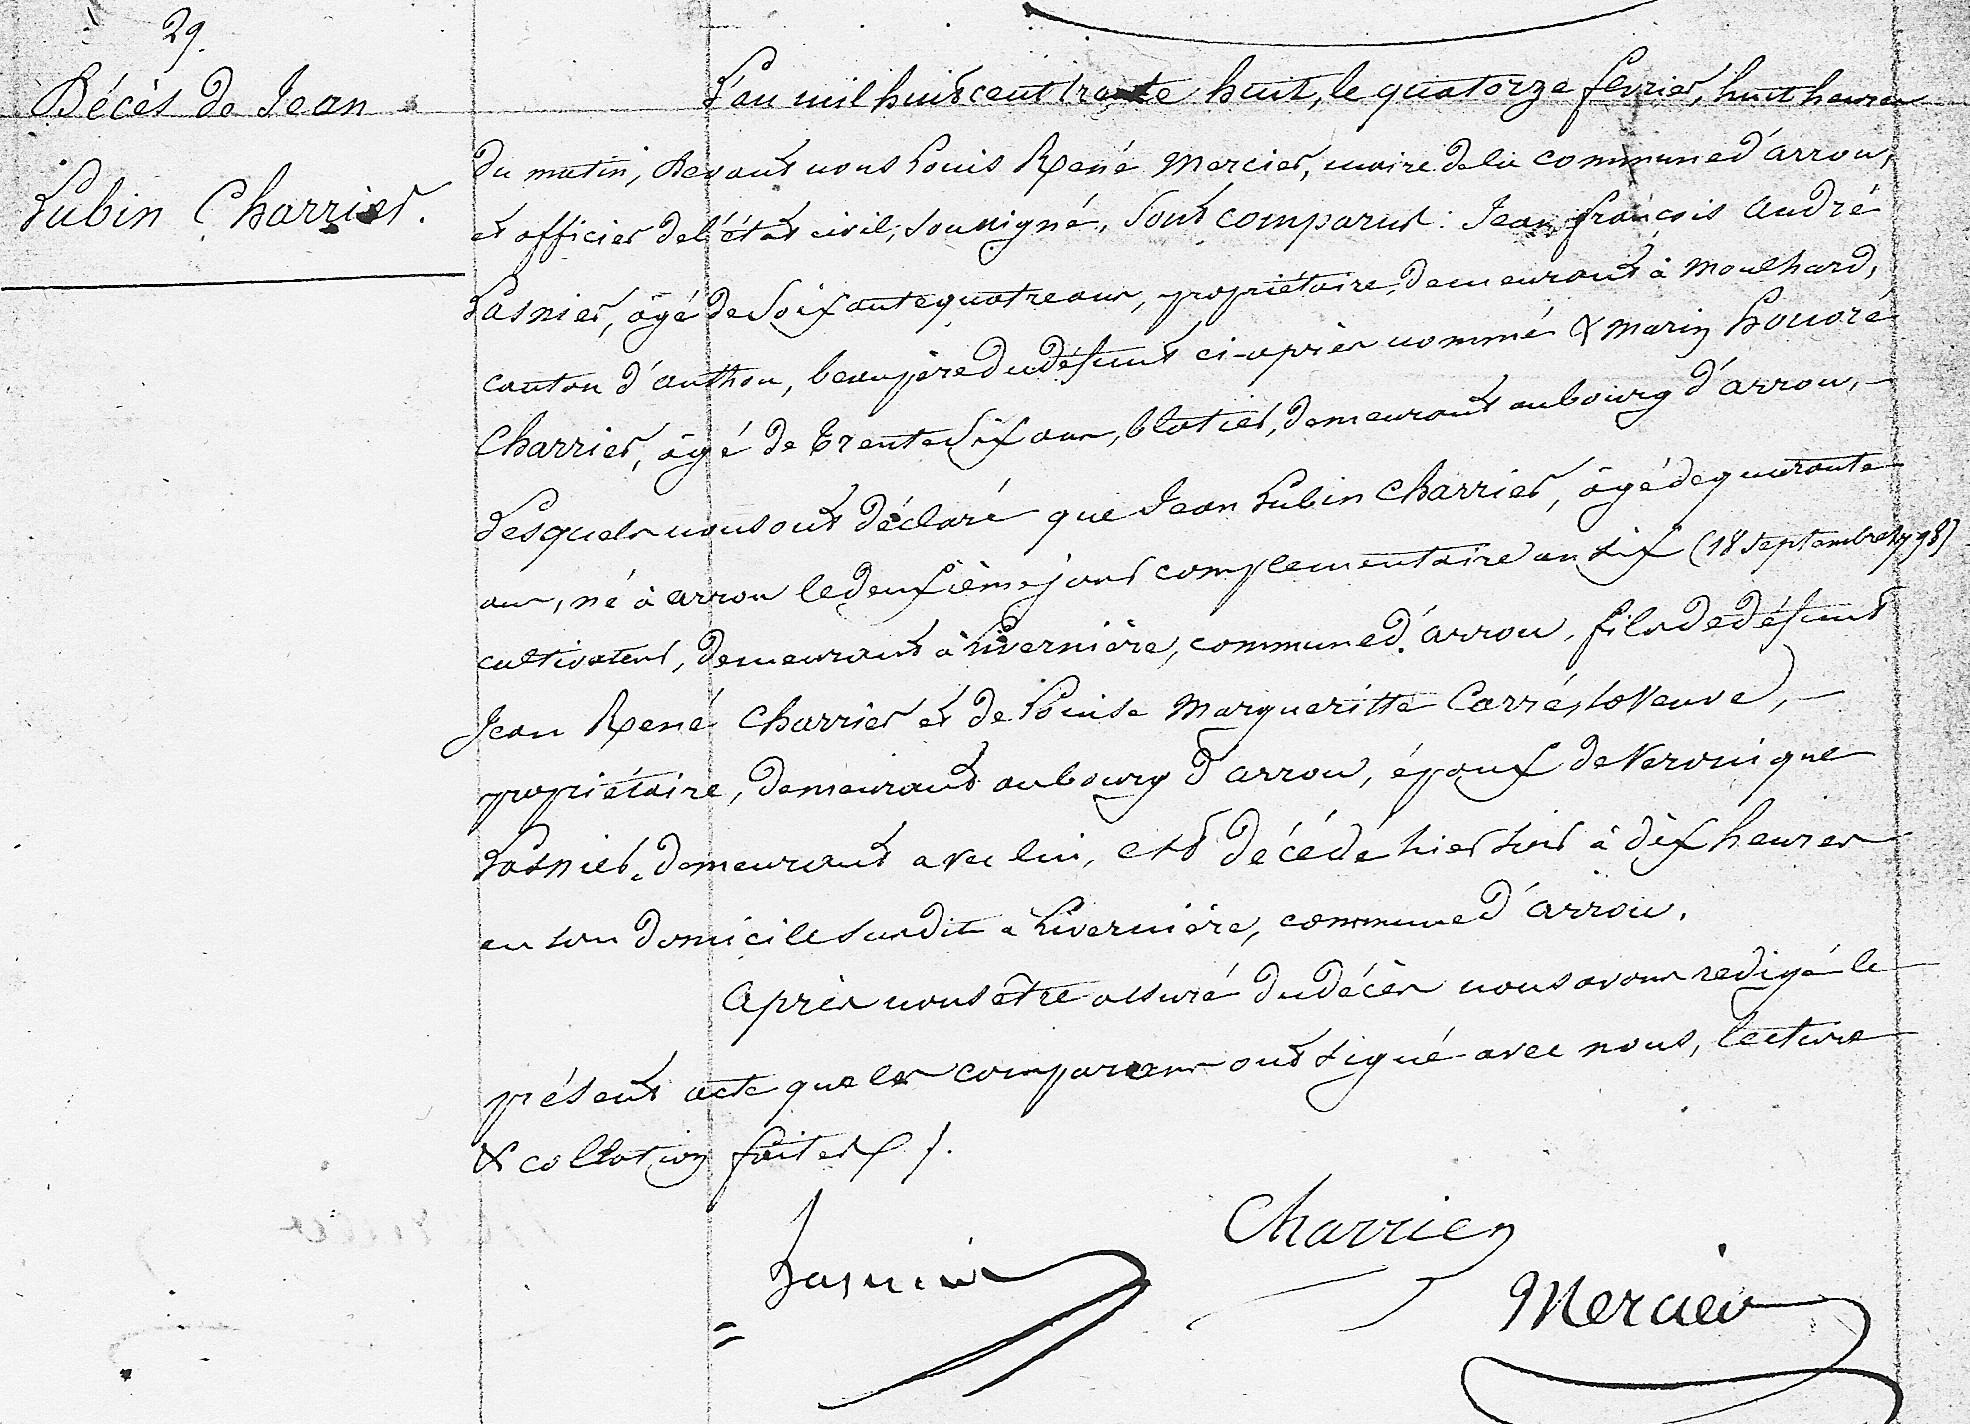 29.
Décès de Jean
Lubin Charrier.
L'an mil huit cent trente huit, le quatorze fevrier, huit heures
du matin, Devant nous Louis René Mercier, maire de la commune d'arrou,
et officier de l'état civil, soussigné, sont comparus: Jean françois andré
Lasnier, âgé de soixante quatre ans, propriétaire, demeurant à Moulhard,
canton d'authon, beaupère du défunt ci-après nommé & Marin honoré
Charrier, âgé de trente six ans, blatier, demeurant au bourg d'arrou,
Lesquels nous ont déclaré que Jean Lubin Charrier, âgé de quarante
ans, né à arrou le deuxième jour complementaire an six (18 septembre 1798)
cultivateur, demeurant à Livernière, commune d'arrou, fils de défunt
Jean René Charrier et de Louise Margueritte Carré, sa Veuve,
propriétaire, demeurant au bourg d'arrou, époux de Veronique
Lasnier, demeurant avec lui, est décédé hier soir à dix heures
en son domicile susdit à Livernière, commune d'arrou.
Après nous être assuré du décès nous avons redigé le
présent acte que les comparans ont signé avec nous, lecture
& collation faites /.
Lasnier
Charrier
Mercier